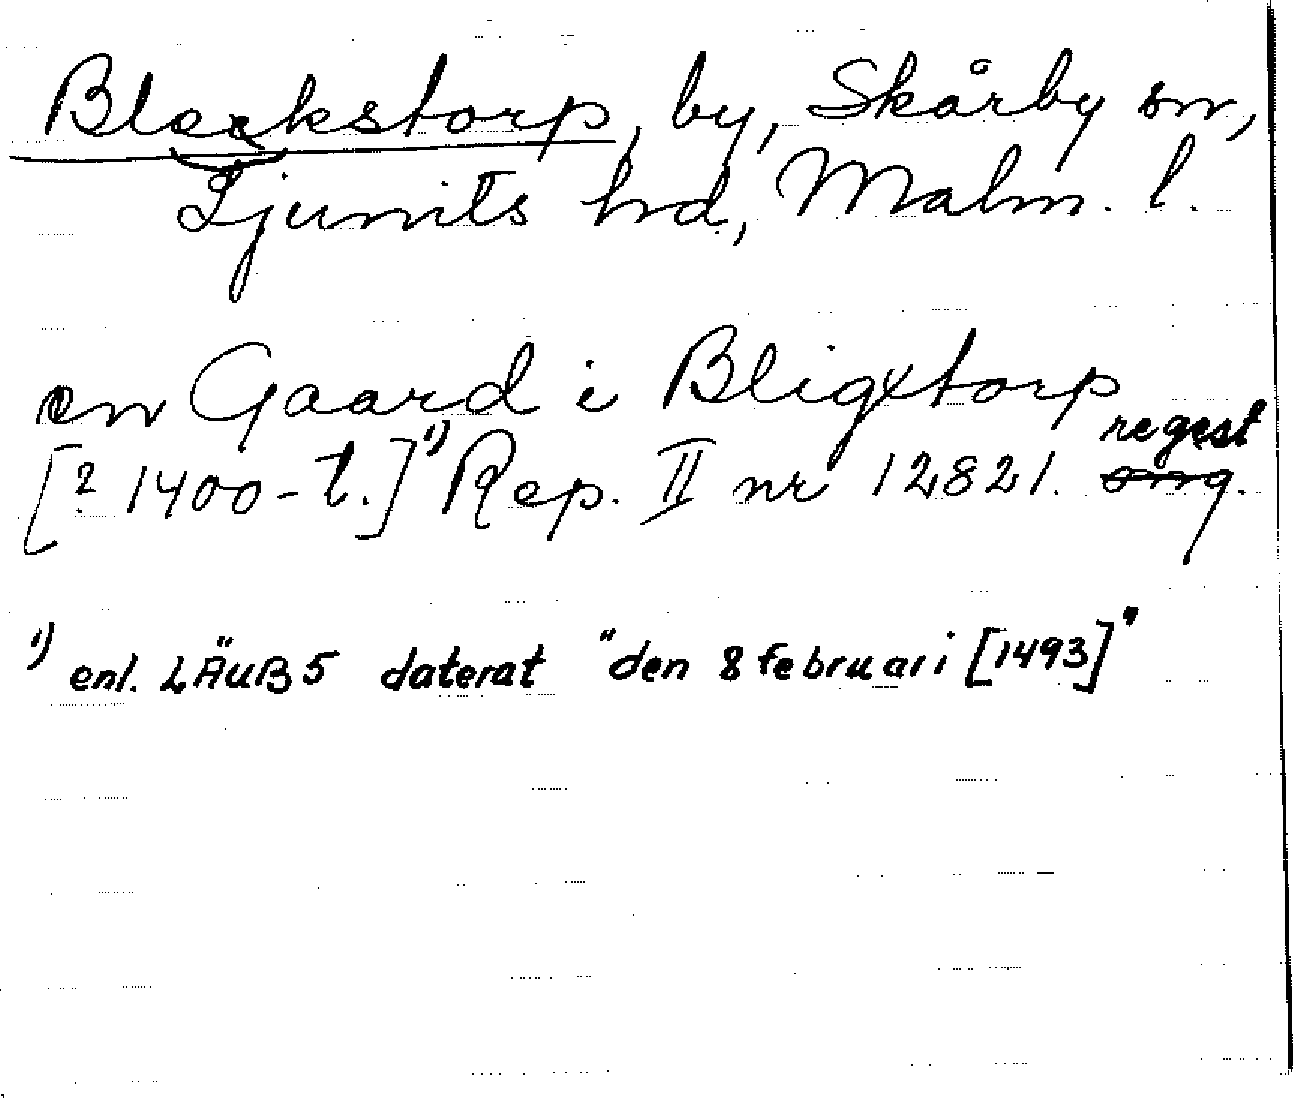 Bleckstorp, by, Skårby sn,
Ljunits hd, Malm. l.
en Gaard i Bligxtorp
[? 1400-t.]¹⁾ Rep. II nr 12821. regest
¹⁾ enl. LÄUB 5 daterat "den 8 februari [1493]"